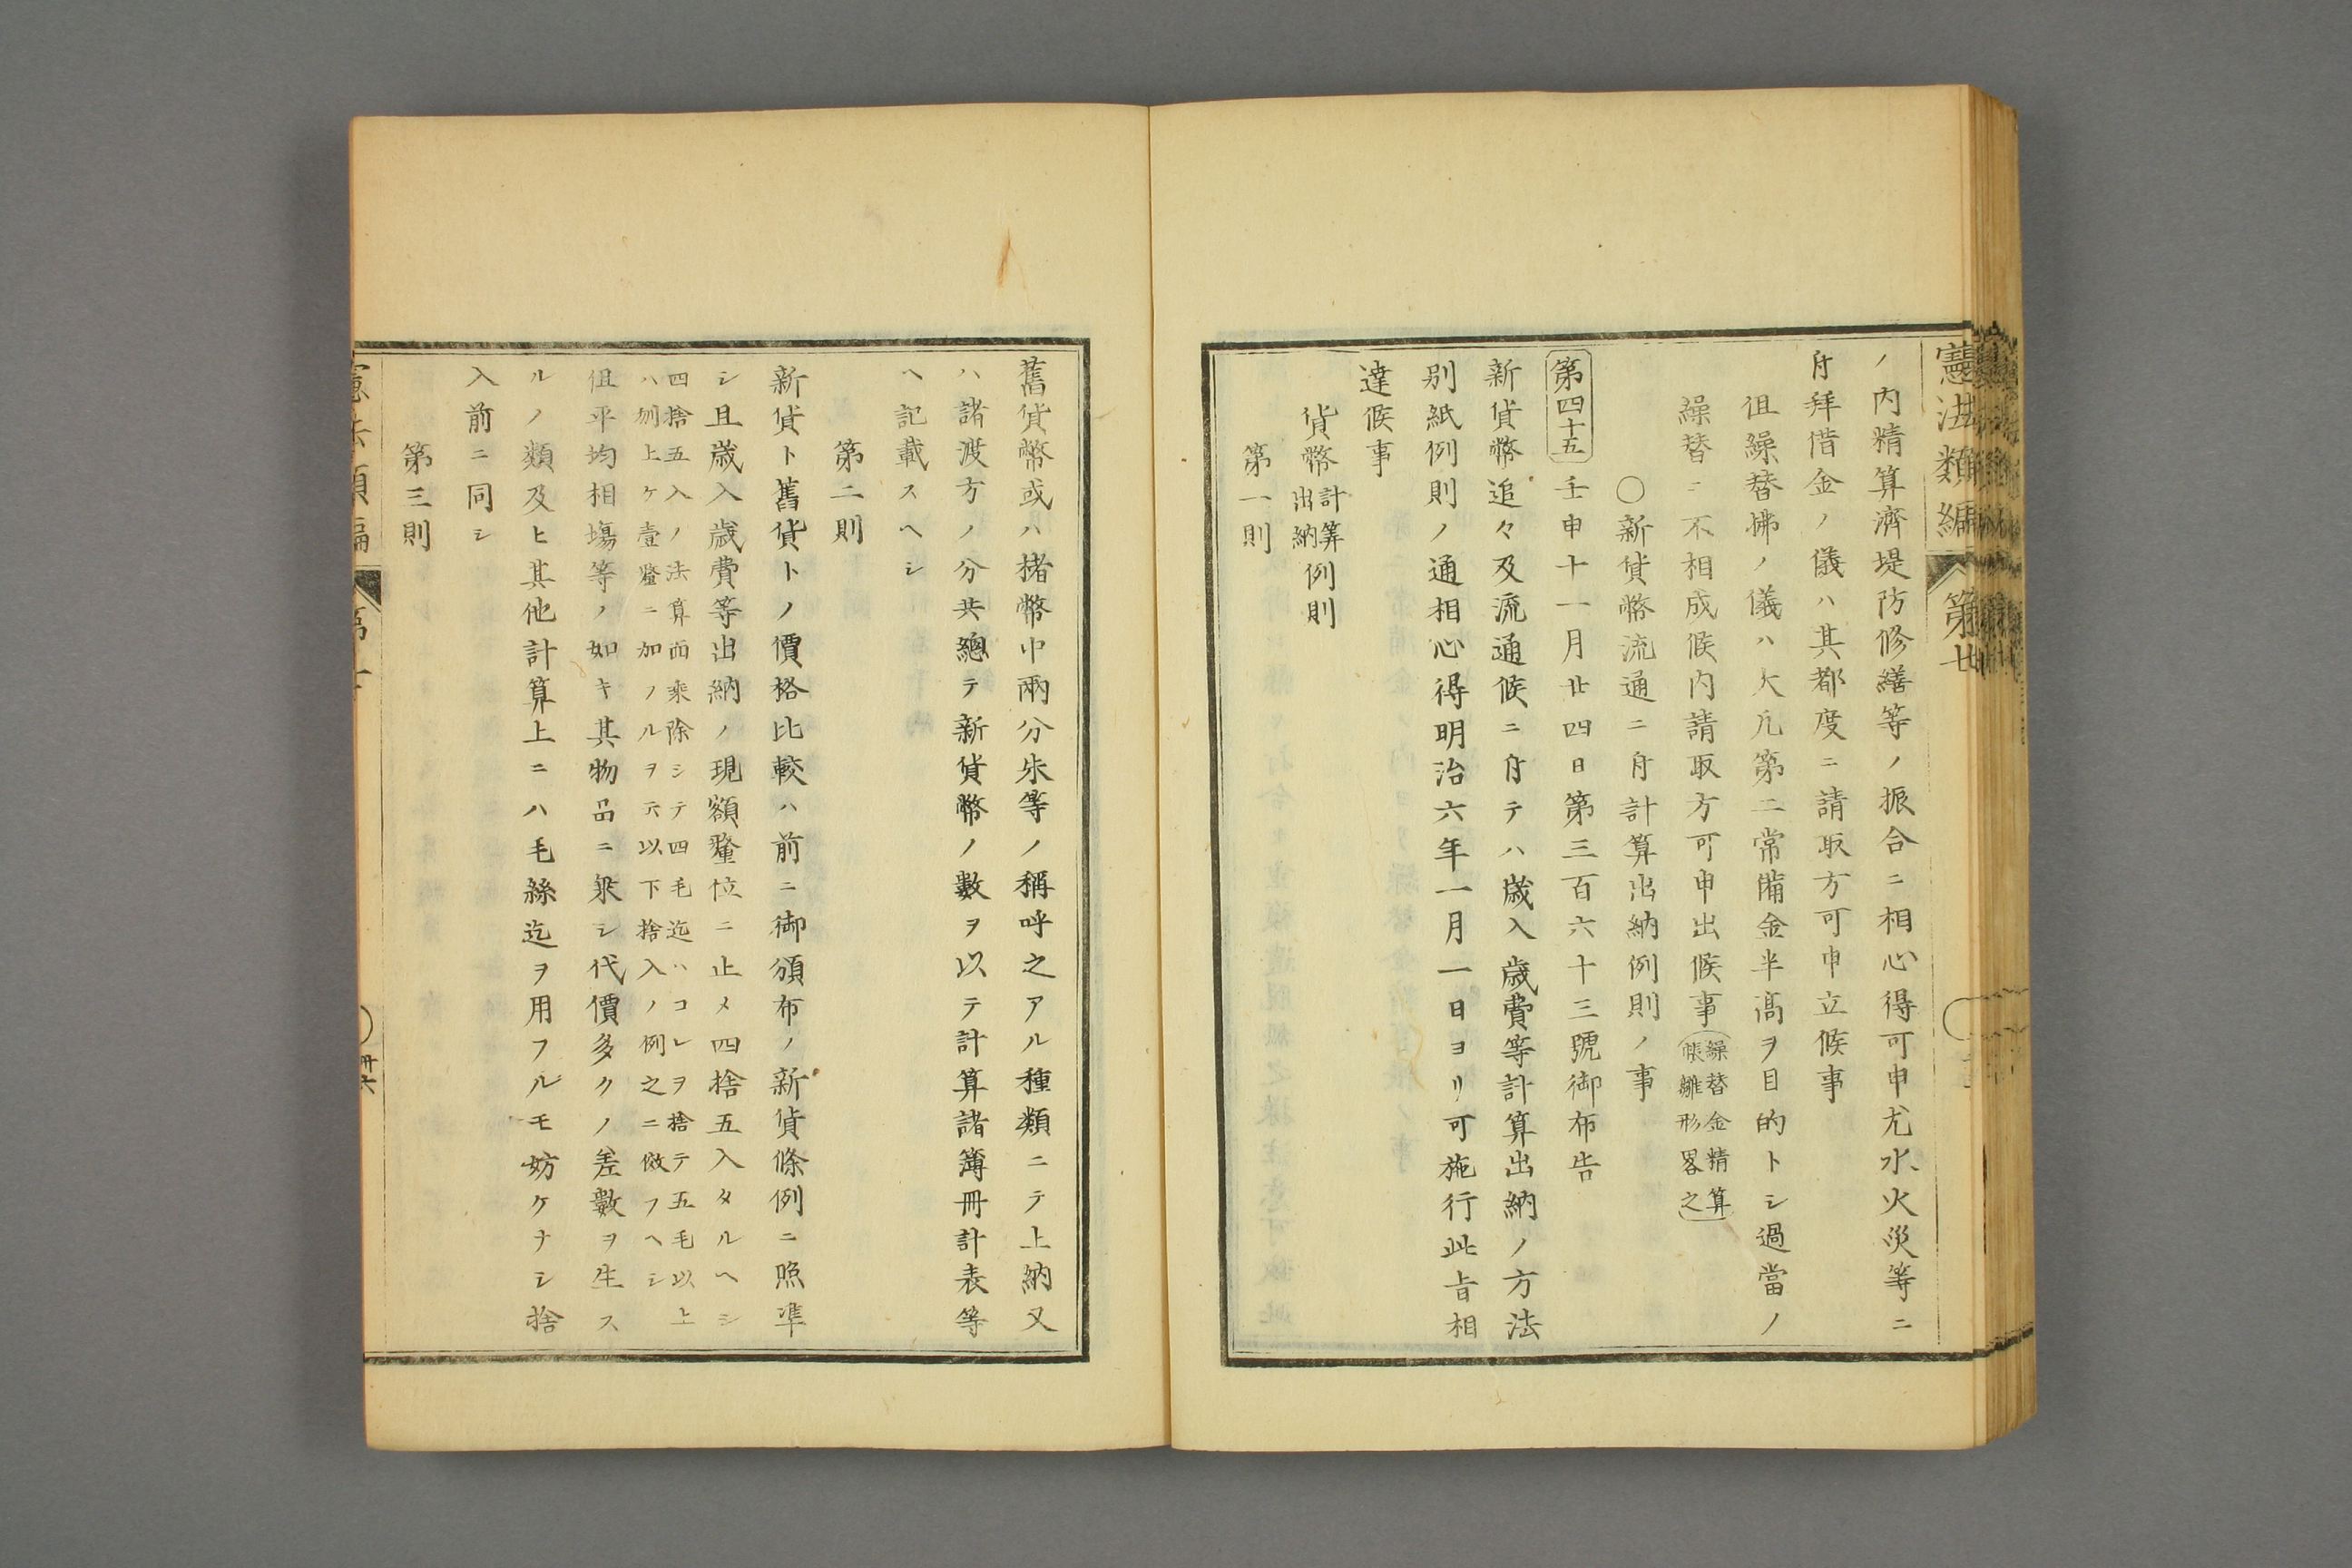 憲法類編 第廿
ノ内精算濟堤防修繕等ノ振合ニ相心得可申尤水火災等ニ
付拜借金ノ儀ハ其都度ニ請取方可申立候事
但繰替拂ノ儀ハ大凡第二常備金半高ヲ目的トシ過當ノ
繰替ニ不相成候内請取方可申出候事(繰替金精算帳雛形畧之)
○新貨幣流通ニ付計算出納例則ノ事
第四十五 壬申十一月廿四日第三百六十三號御布告
新貨幣追々及流通候ニ付テハ歳入歳費等計算出納ノ方法
別紙例則ノ通相心得明治六年一月一日ヨリ可施行此旨相
達候事
貨幣計算出納例則
第一則
舊貨幣或ハ楮幣中兩分朱等ノ稱呼之アル種類ニテ上納又
ハ諸渡方ノ分共總テ新貨幣ノ數ヲ以テ計算諸簿冊計表等
ヘ記載スヘシ
第二則
新貨ト舊貨トノ價格比較ハ前ニ御頒布ノ新貨條例ニ照準
シ且歳入歳費等出納ノ現額釐位ニ止メ四捨五入タルヘシ
四捨五入ノ法算面乘除シテ四毛迄ハコレヲ捨テ五毛以上
ハ刎上ケ壹釐ニ加ノルヲ云以下捨入ノ例之ニ倣フヘシ
但平均相塲等ノ如キ其物品ニ乘シ代價多クノ差數ヲ生ス
ルノ類及ヒ其他計算上ニハ毛絲迄ヲ用フルモ妨ケナシ捨
入前ニ同シ
第三則
憲法類編 第廿
卅六